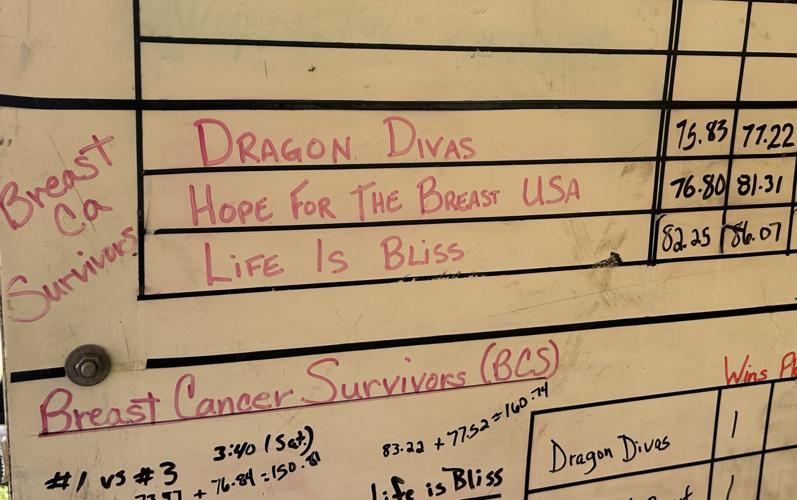 Breast Ca Survivors
DRAGON DIVAS 75.83 77.22
HOPE FOR THE BREAST USA 76.80 81.31
LIFE IS BLISS 82.25 86.07
Breast Cancer Survivors (BCS)
Wins
3:40 (Sat.)
83.22 + 77.52 = 160.74
Dragon Divas 1
#1 vs #3
+ 76.84 = 150.81
Life is Bliss
1